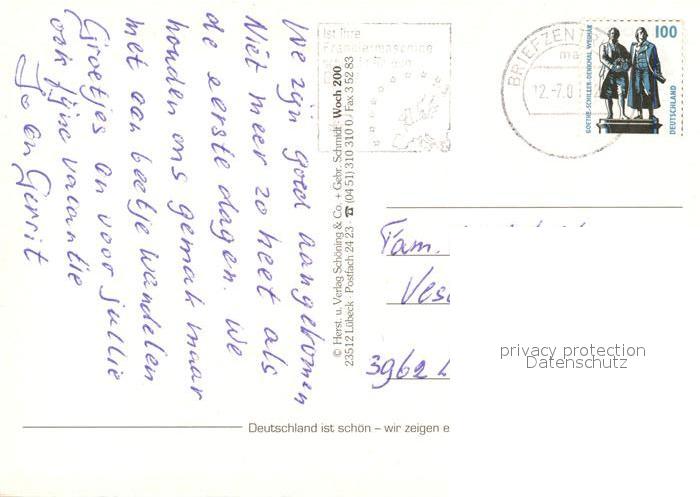 We zijn goed aangekomen
Niet meer zo heet als
de eerste dagen. We
houden ons gemak maar
met een beetje wandelen
Groetjes en voor jullie
ook fijne vacantie
Jo en Gerrit
© Herst. u. Verlag Schöning & Co. + Gebr. Schmidt · Woch 200
23512 Lübeck · Postfach 24 23 · ☎ (04 51) 310 310 0 / Fax 3 52 83
Ist Ihre
Frankiermaschine
BRIEFZEN
12.-7.0
100
GOETHE-SCHILLER-DENKMAL WEIMAR
DEUTSCHLAND
Fam.
Ves
3962
privacy protection
Datenschutz
Deutschland ist schön – wir zeigen e